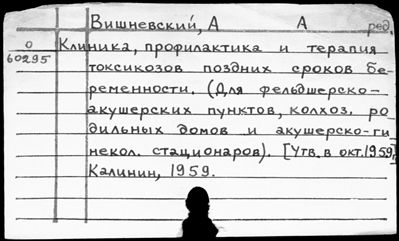 Вишневский, А А ред.
о Клиника, профилактика и терапия
60295 токсикозов поздних сроков бе-
ременности. (Для фельдшерско-
акушерских пунктов, колхоз. ро-
дильных домов и акушерско-ги-
некол. стационаров). [Утв. в окт. 1959]
Калинин, 1959.